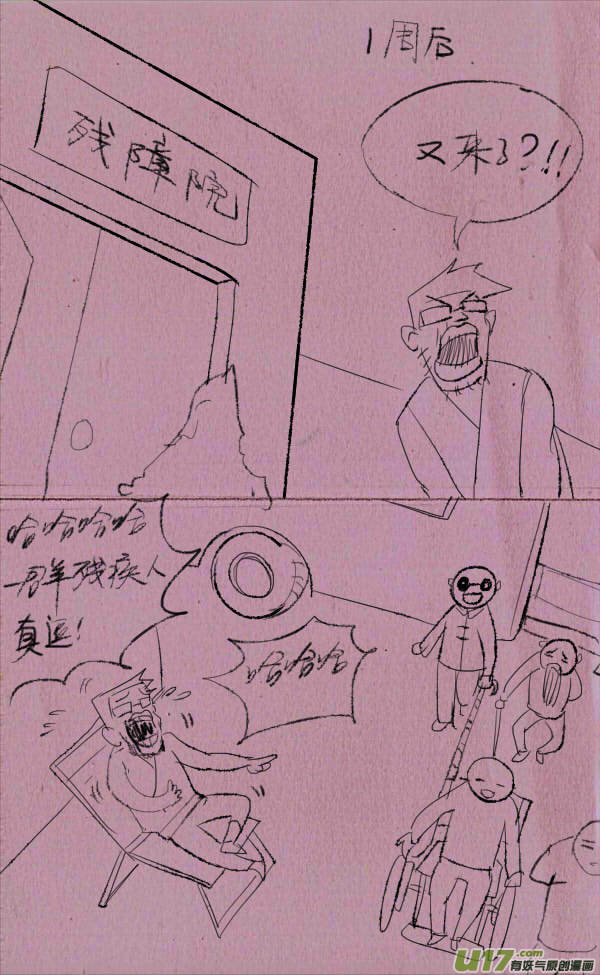 1周后
残障院
又来了?!!
哈哈哈哈
一群残疾人
真逗!
哈哈哈
U17.COM
有妖气原创漫画